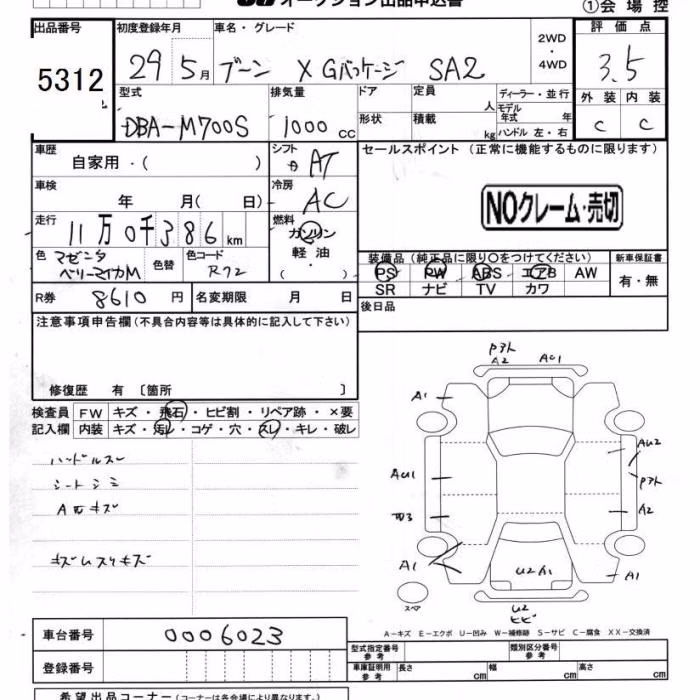 オークション出品申込書
①会場控
出品番号
5312
初度登録年月
29 5月
車名・グレード
ブーン X Gパッケージ SA2
2WD
・
4WD
評価点
3.5
外装 内装
C C
型式
DBA-M700S
排気量
1000 cc
ドア
形状
定員
人
積載
kg
ディーラー・並行
モデル年式 年
ハンドル 左・右
車歴
自家用・( )
シフト
AT
セールスポイント(正常に機能するものに限ります)
車検
年 月( 日)
冷房
AC
NOクレーム・売切
走行
11万0千386km
燃料
ガソリン
軽油
・( )
色
マゼンタ
ベリーマイカM
色替
色コード
R72
装備品(純正品に限り○をつけてください)
PS PW ABS エアB AW
SR ナビ TV カワ
新車保証書
有・無
R券 8610 円
名変期限 月 日
後日品
注意事項申告欄(不具合内容等は具体的に記入して下さい)
修復歴 有〔箇所 〕
検査員
記入欄
FW キズ・飛石・ヒビ割・リペア跡・×要
内装 キズ・汚レ・コゲ・穴・スレ・キレ・破レ
ハンドルスレ
シートシミ
キズ
A2 AU1
A1
AU2
AU1
A2
A1
U2 A1
A1
U2
ヒビ
スペア
A-キズ E-エクボ U-凹み W-補修跡 S-サビ C-腐食 XX-交換済
車台番号
0006023
登録番号
型式指定番号
参考
類別区分番号
参考
車庫証明用
参考
長さ cm 幅 cm 高さ cm
希望出品コーナー(コーナーは各会場により異なります。)